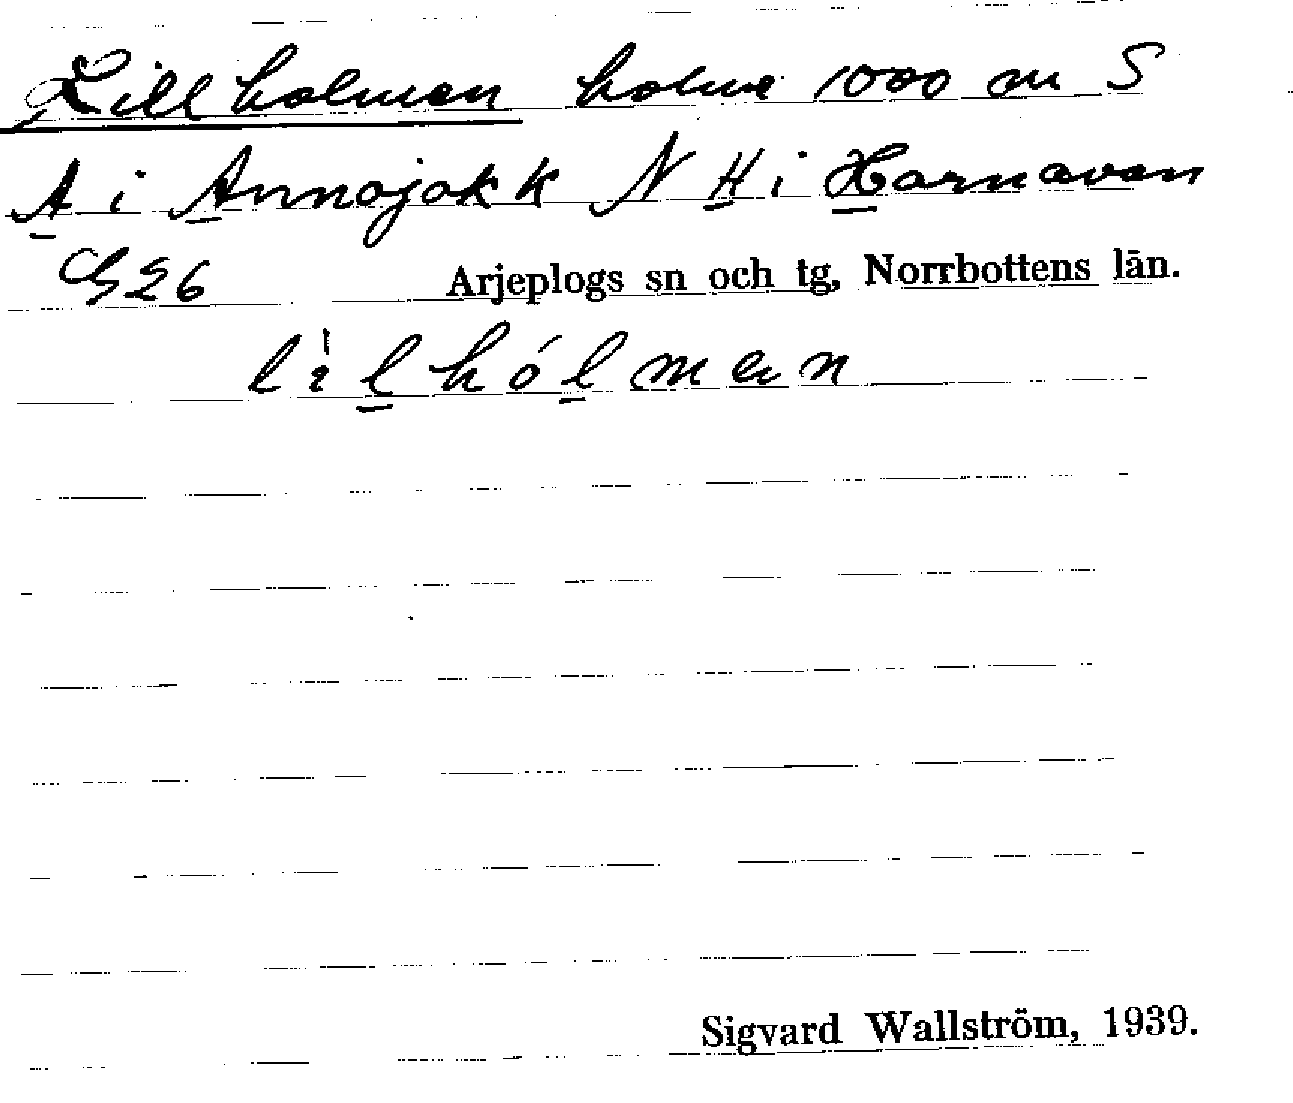 Lillholmen holme 1000 m S
A i Annojokk N H i Hornavan
G26 Arjeplogs sn och tg, Norrbottens län.
lìlhólmen
Sigvard Wallström, 1939.